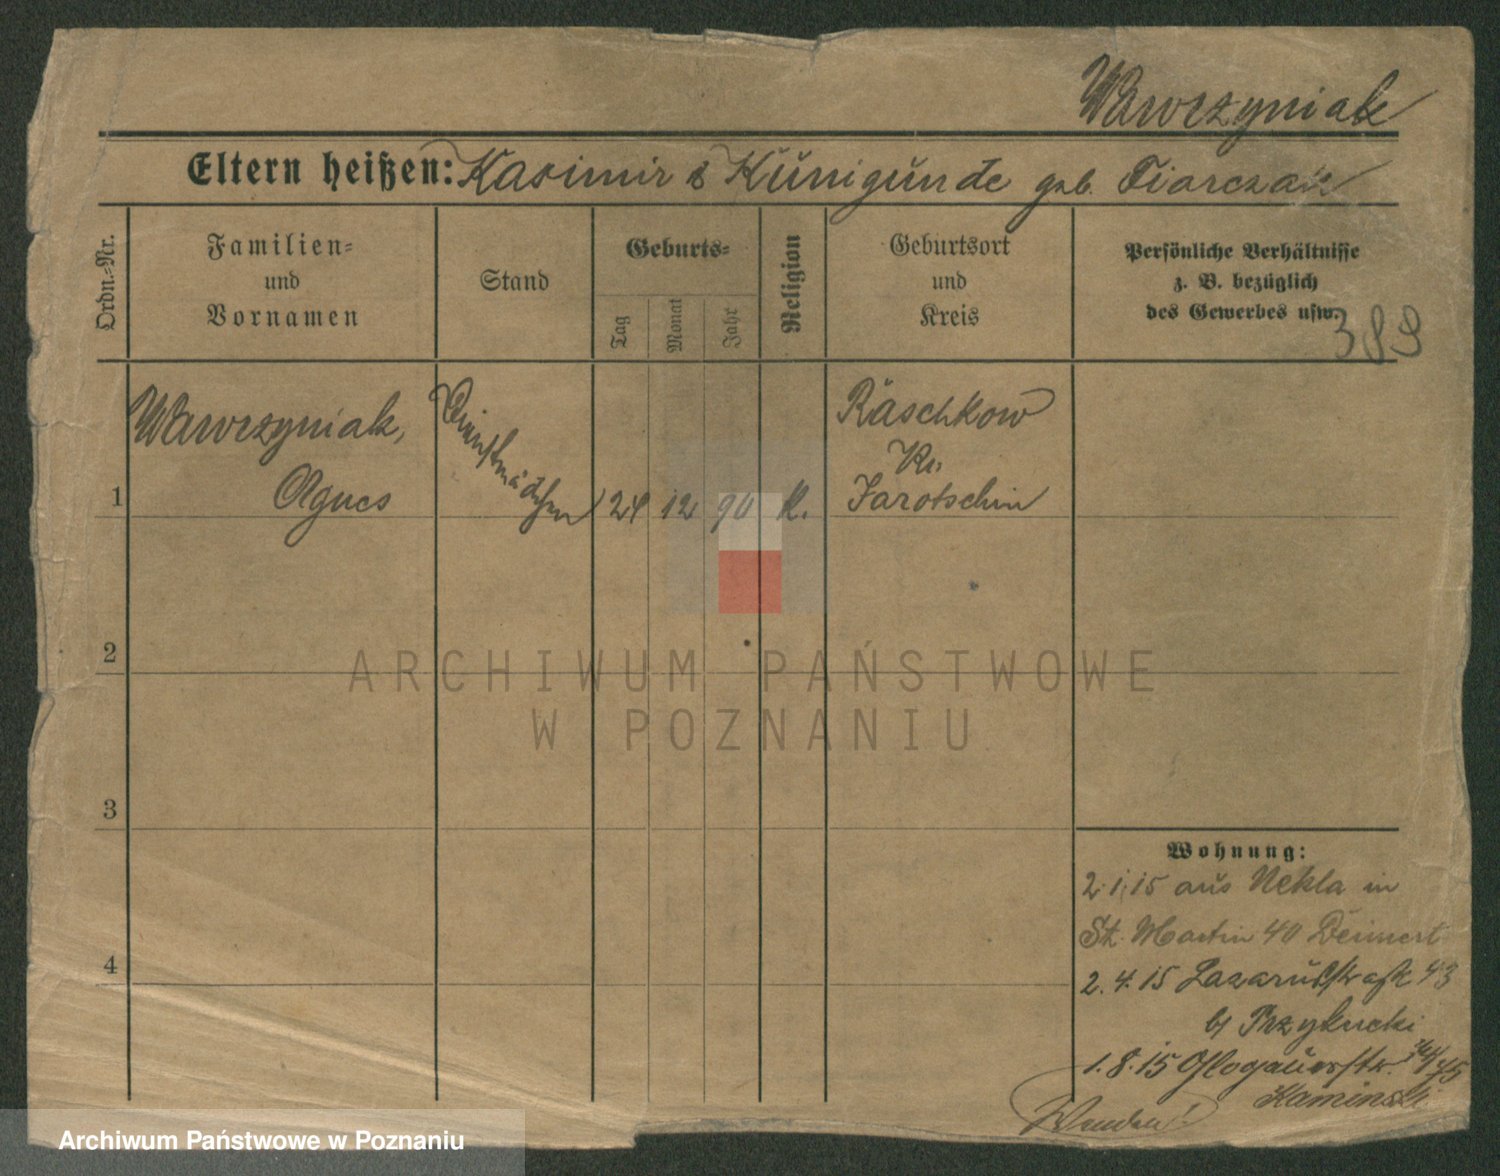 Wawrzyniak
Eltern heißen: Kasimir & Kunigunde geb.
Ordn.-Nr.
Familien-
und
Vornamen
Stand
Geburts-
Tag
Monat
Jahr
Religion
Geburtsort
und
Kreis
Persönliche Verhältnisse
z. B. bezüglich
des Gewerbes usw.
389
1
Wawrzyniak,
Agnes
Dienstmädchen
24 12 90 K.
Raschkow
Kr.
Jarotschin
2
3
4
Wohnung:
2.1.15 aus Nekla in
St. Martin 40
2.4.15 Lazarusstraße 43
b/
1.8.15 Glogauerstr.
Kaminski
ARCHIWUM PAŃSTWOWE
W POZNANIU
Archiwum Państwowe w Poznaniu